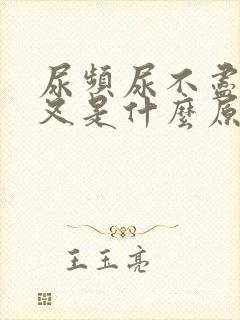 尿頻尿不盡
又是什麼原
王玉亮